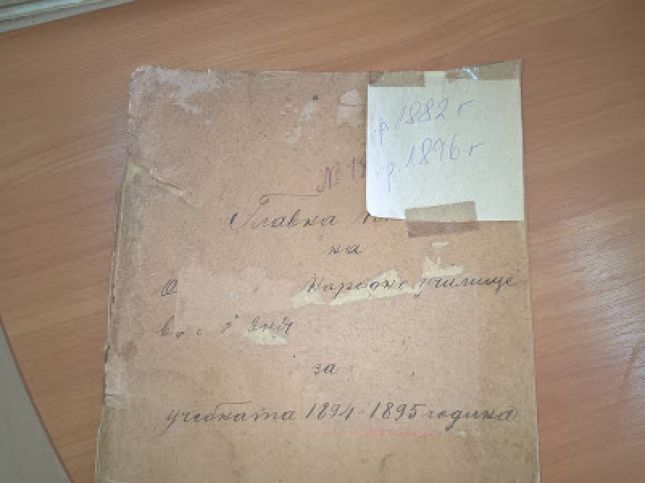 р. 1882 г
р 1896 г
№ 1
Главна
на
Народно училище
за
учебната 1894-1895 година